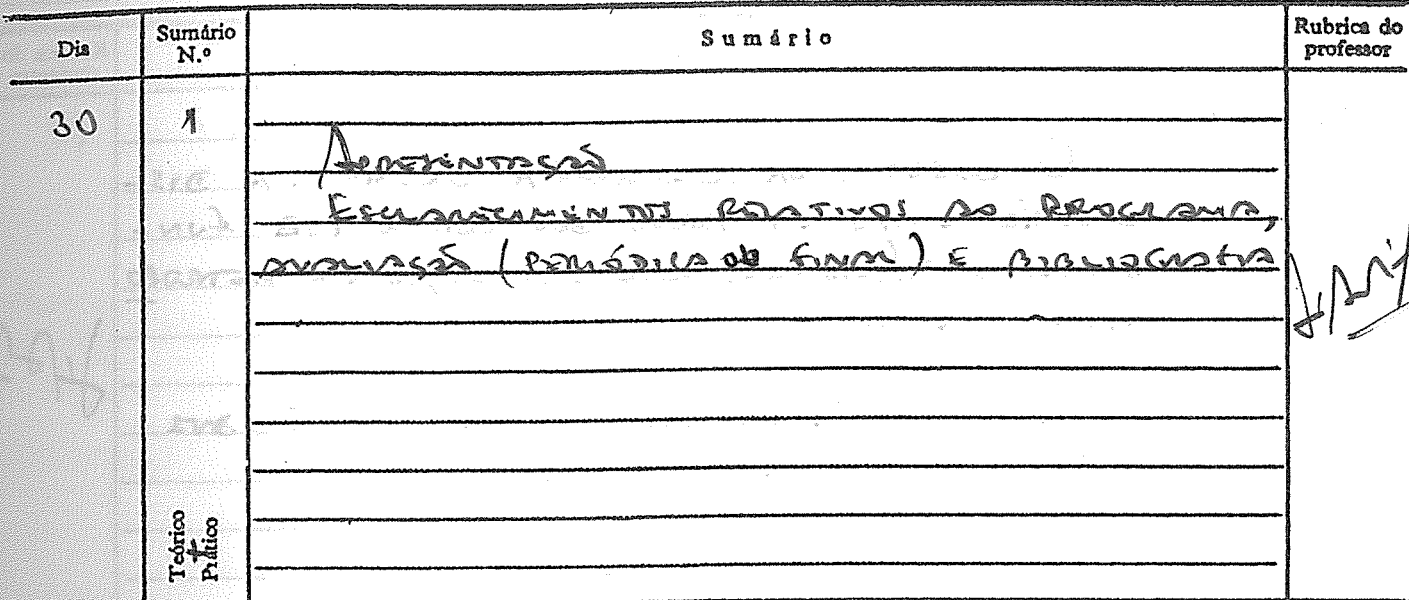 Dia Sumário N.º Sumário Rubrica do professor
30 1
Apresentação
Esclarecimentos relativos ao programa,
avaliação (periódica ou final) e bibliografia
Teórico + Prático